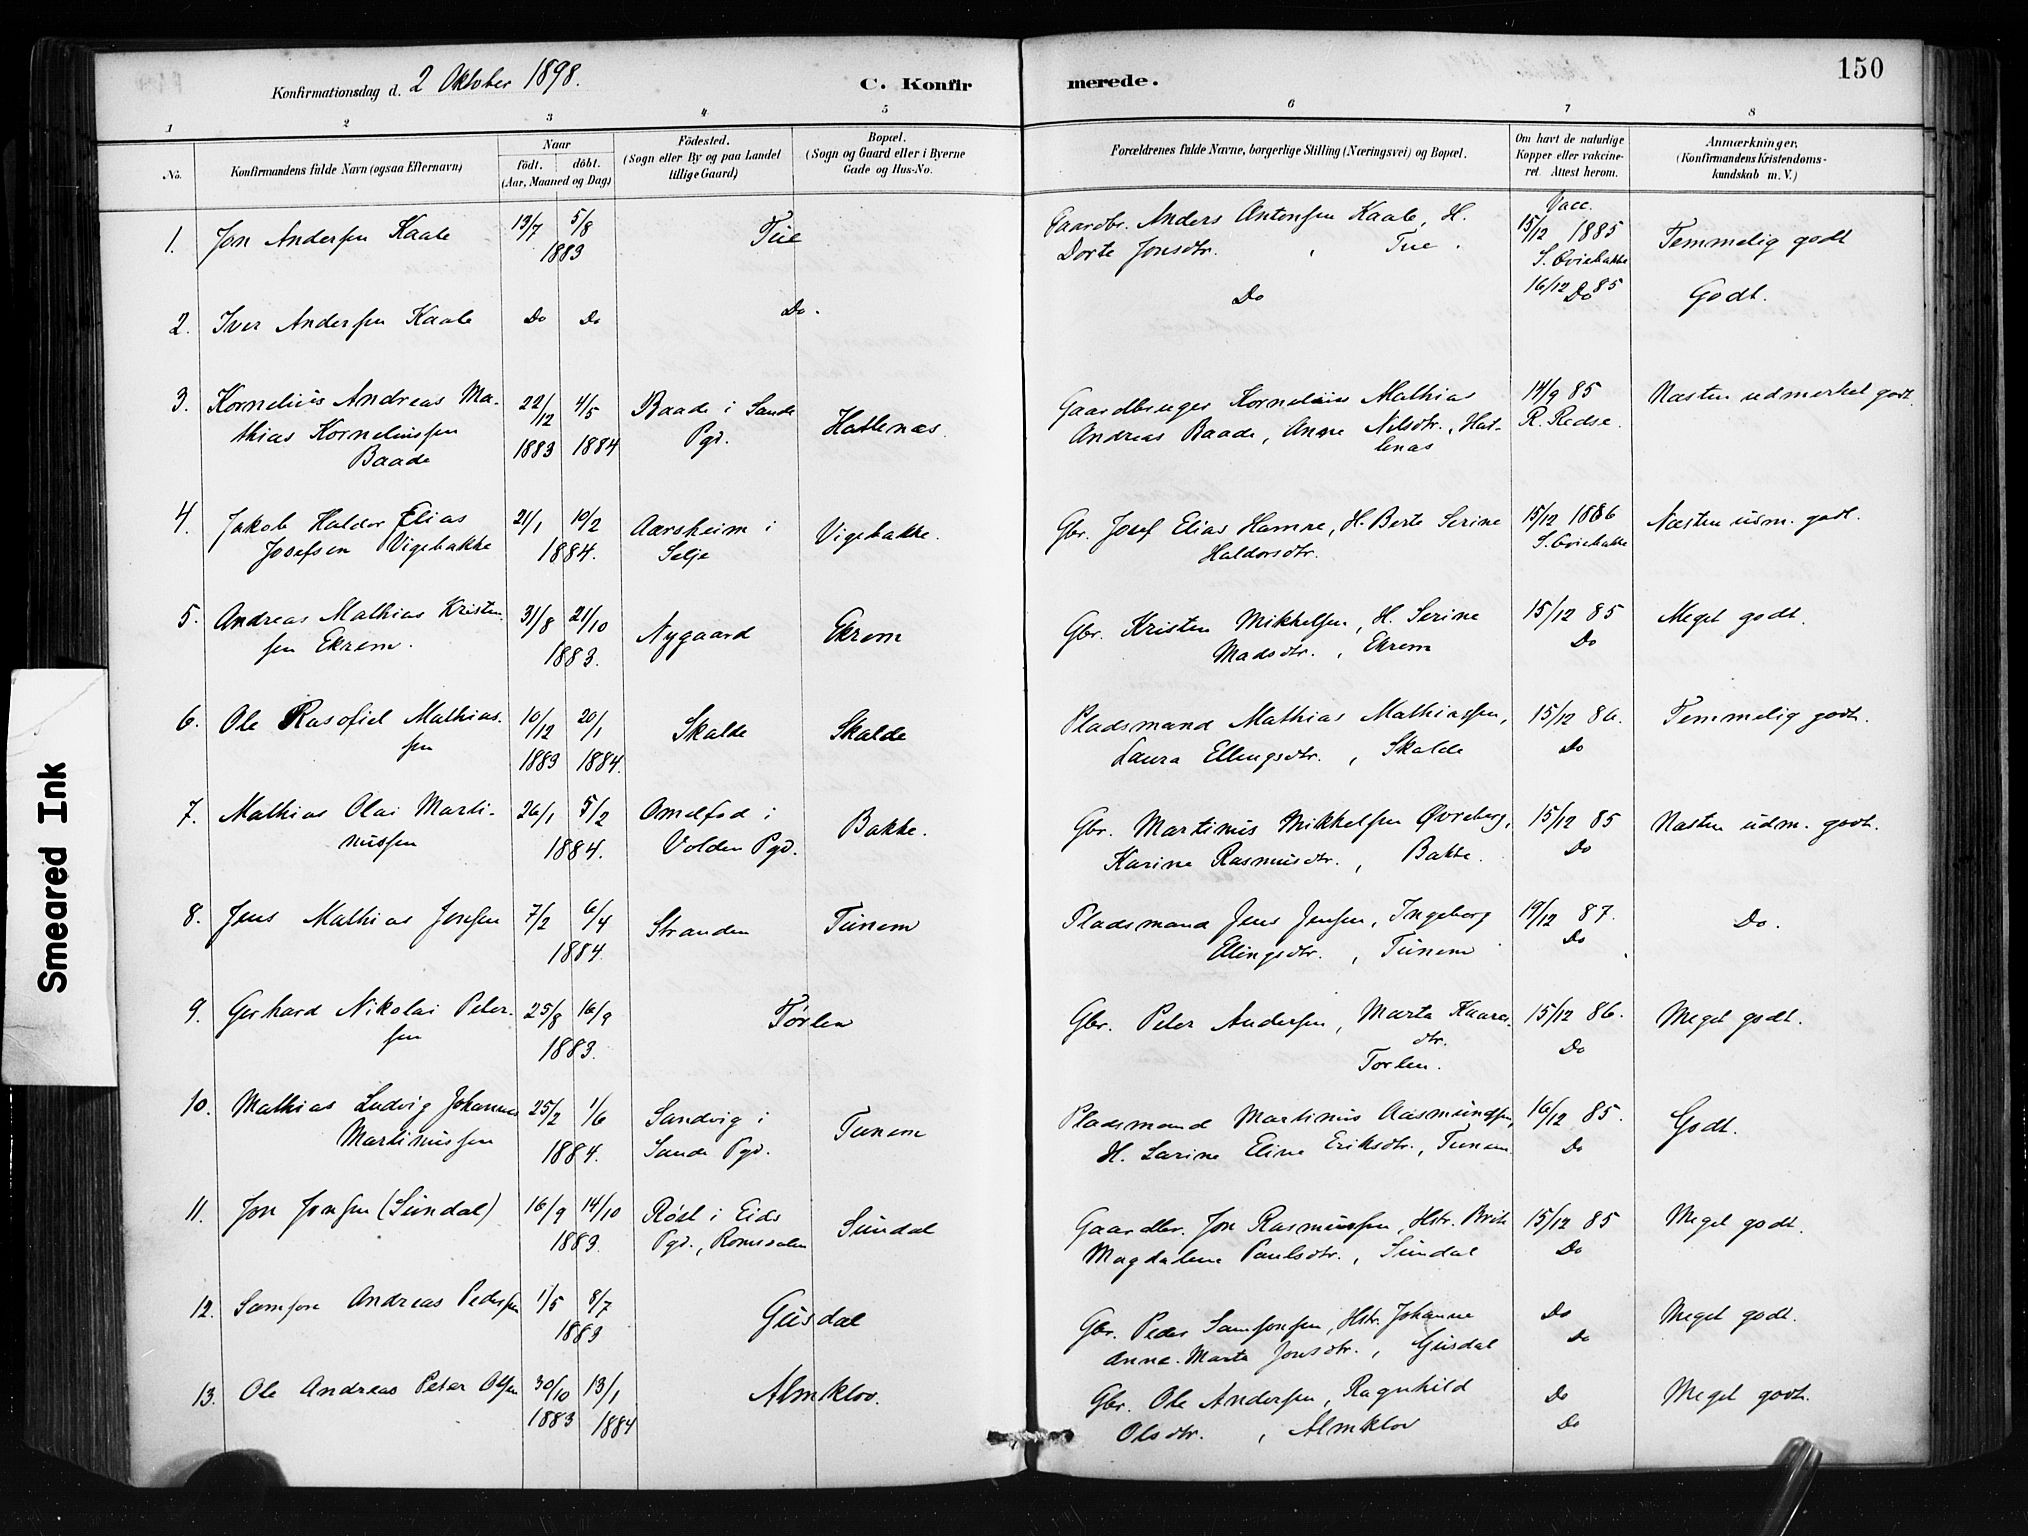 150
Konfirmationsdag d. 2 Oktober 1898.
C. Konfirmerede.
1 2 3 4 5 6 7 8
No.
Konfirmandens fulde Navn (ogsaa Efternavn)
Naar
födt. döbt.
(Aar, Maaned og Dag)
Födested.
(Sogn eller By og paa Landet
tillige Gaard)
Bopæl.
(Sogn og Gaard eller i Byerne
Gade og Hus-No.
Forældrenes fulde Navne, borgerlige Stilling (Næringsvei) og Bopæl.
Om havt de naturlige
Kopper eller vakcine-
ret. Attest herom.
Anmærkninger.
(Konfirmandens Kristendoms-
kundskab m. V.)
1. Jon Andersen Kaale 13/7 5/8 Tue Gaardbr. Anders Antonsen Kaale, H. Vacc. 15/12 1885 Temmelig godt
1883 Dorte Jonsdtr. , Tue .
2. Iver Andersen Kaale Do Do Do. Do 16/12 85 Do Godt.
3. Kornelius Andreas Ma- 22/12 4/5 Baade i Sande Hatlenæs. Gaardbruger Kornelius Mathias 14/9 85 Næsten udmerket godt.
thias Korneliussen 1883 1884 Pgd. Andreas Baade, Anne Nilsdtr., Hat- R. Redse.
Baade lenæs
4. Jakob Haldor Elias 21/1 10/2 Aarsheim i Vigebakke. Gbr. Josef Elias Hamre, H. Berte Serine 15/12 1886 Næsten udm. godt.
Josefsen Vigebakke 1884. Selje Haldorsdtr.
5. Andreas Mathias Kristen 31/8 21/10 Nygaard Ekrem Gbr. Kristen Mikkelsen, H. Serine 15/12 85 Meget godt.
sen Ekrem. 1883. Madsdtr. , Ekrem Do
6. Ole Rasofiel Mathias- 10/12 20/1 Skalde Skalde Pladsmand Mathias Mathiassen, 15/12 86. Temmelig godt.
sen 1883 1884. Laura Ellingsdtr. , Skalde Do
7. Mathias Olai Marti- 26/1 5/2 Omelfod i Bakke. Gbr. Martinus Mikkelsen Øvreberg, 15/12 85 Næsten udm. godt.
nussen 1884. Volden Pgd. Karine Rasmusdtr. , Bakke. Do
8. Jens Mathias Jensen 7/2 6/4 Stranden Tunem Pladsmand Jens Jensen, Ingeborg 19/12 87. Do.
1884. Ellingsdtr. , Tunem Do
9. Gerhard Nikolai Peter- 25/8 16/9 Tørlen Gbr. Peter Andersen, Marte Kaares- 15/12 86. Meget godt.
sen 1883. dtr. Do
Torlen.
10. Mathias Ludvig Johannes 25/2 1/6 Sandvig i Tunem Pladsmand Martinus Aasmundsen, 16/12 85. Godt.
Martinussen 1884. Sande Pgd. H. Sarine Eline Eriksdtr., Tunem. Do
11. Jon Jonsen (Sundal) 16/9 14/10 Rödl i Eids Sundal Gaardbr. Jon Rasmussen, Hstr. Brit 15/12 85 Meget godt.
1883. Pgd., Romsdalen Magdalene Paulsdtr. , Sundal Do
12. Samson Andreas Pedersen 1/5 8/7 Gusdal Gbr. Peder Samsonsen, Hstr. Johanne Do Meget godt.
1883 Anne-Marte Jonsdtr. , Gusdal Do
13. Ole Andreas Peter Olsen 30/10 13/1 Almklov. Gbr. Ole Andersen, Ragnhild Do Meget godt.
1883 1884 Olsdtr. , Almklov Do
Smeared Ink